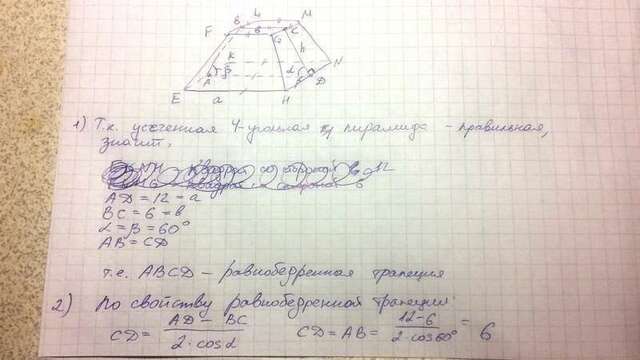 6 L M
F B в C
G
K h N
A β α D
E a H
1) Т.к. усеченная 4-угольная пирамида - правильная,
значит,
AD = 12 = a
BC = 6 = в
α = β = 60°
AB = CD
т.е. ABCD - равнобедренная трапеция
2) По свойству равнобедренной трапеции:
CD = (AD - BC) / (2 · cos α) CD = AB = (12 - 6) / (2 · cos 60°) = 6